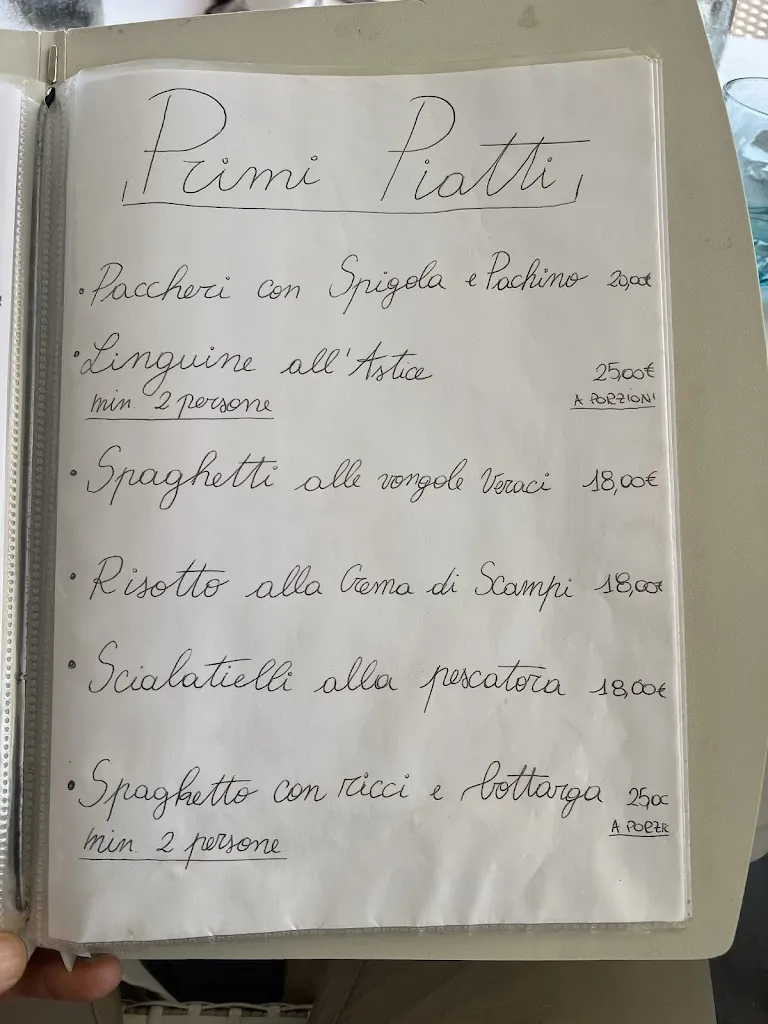 Primi Piatti
• Paccheri con Spigola e Pachino 20,00€
• Linguine all'Astice 25,00€
min. 2 persone A PORZIONI
• Spaghetti alle vongole Veraci 18,00€
• Risotto alla Crema di Scampi 18,00€
• Scialatielli alla pescatora 18,00€
• Spaghetto con ricci e bottarga 25,00
min. 2 persone A PORZI